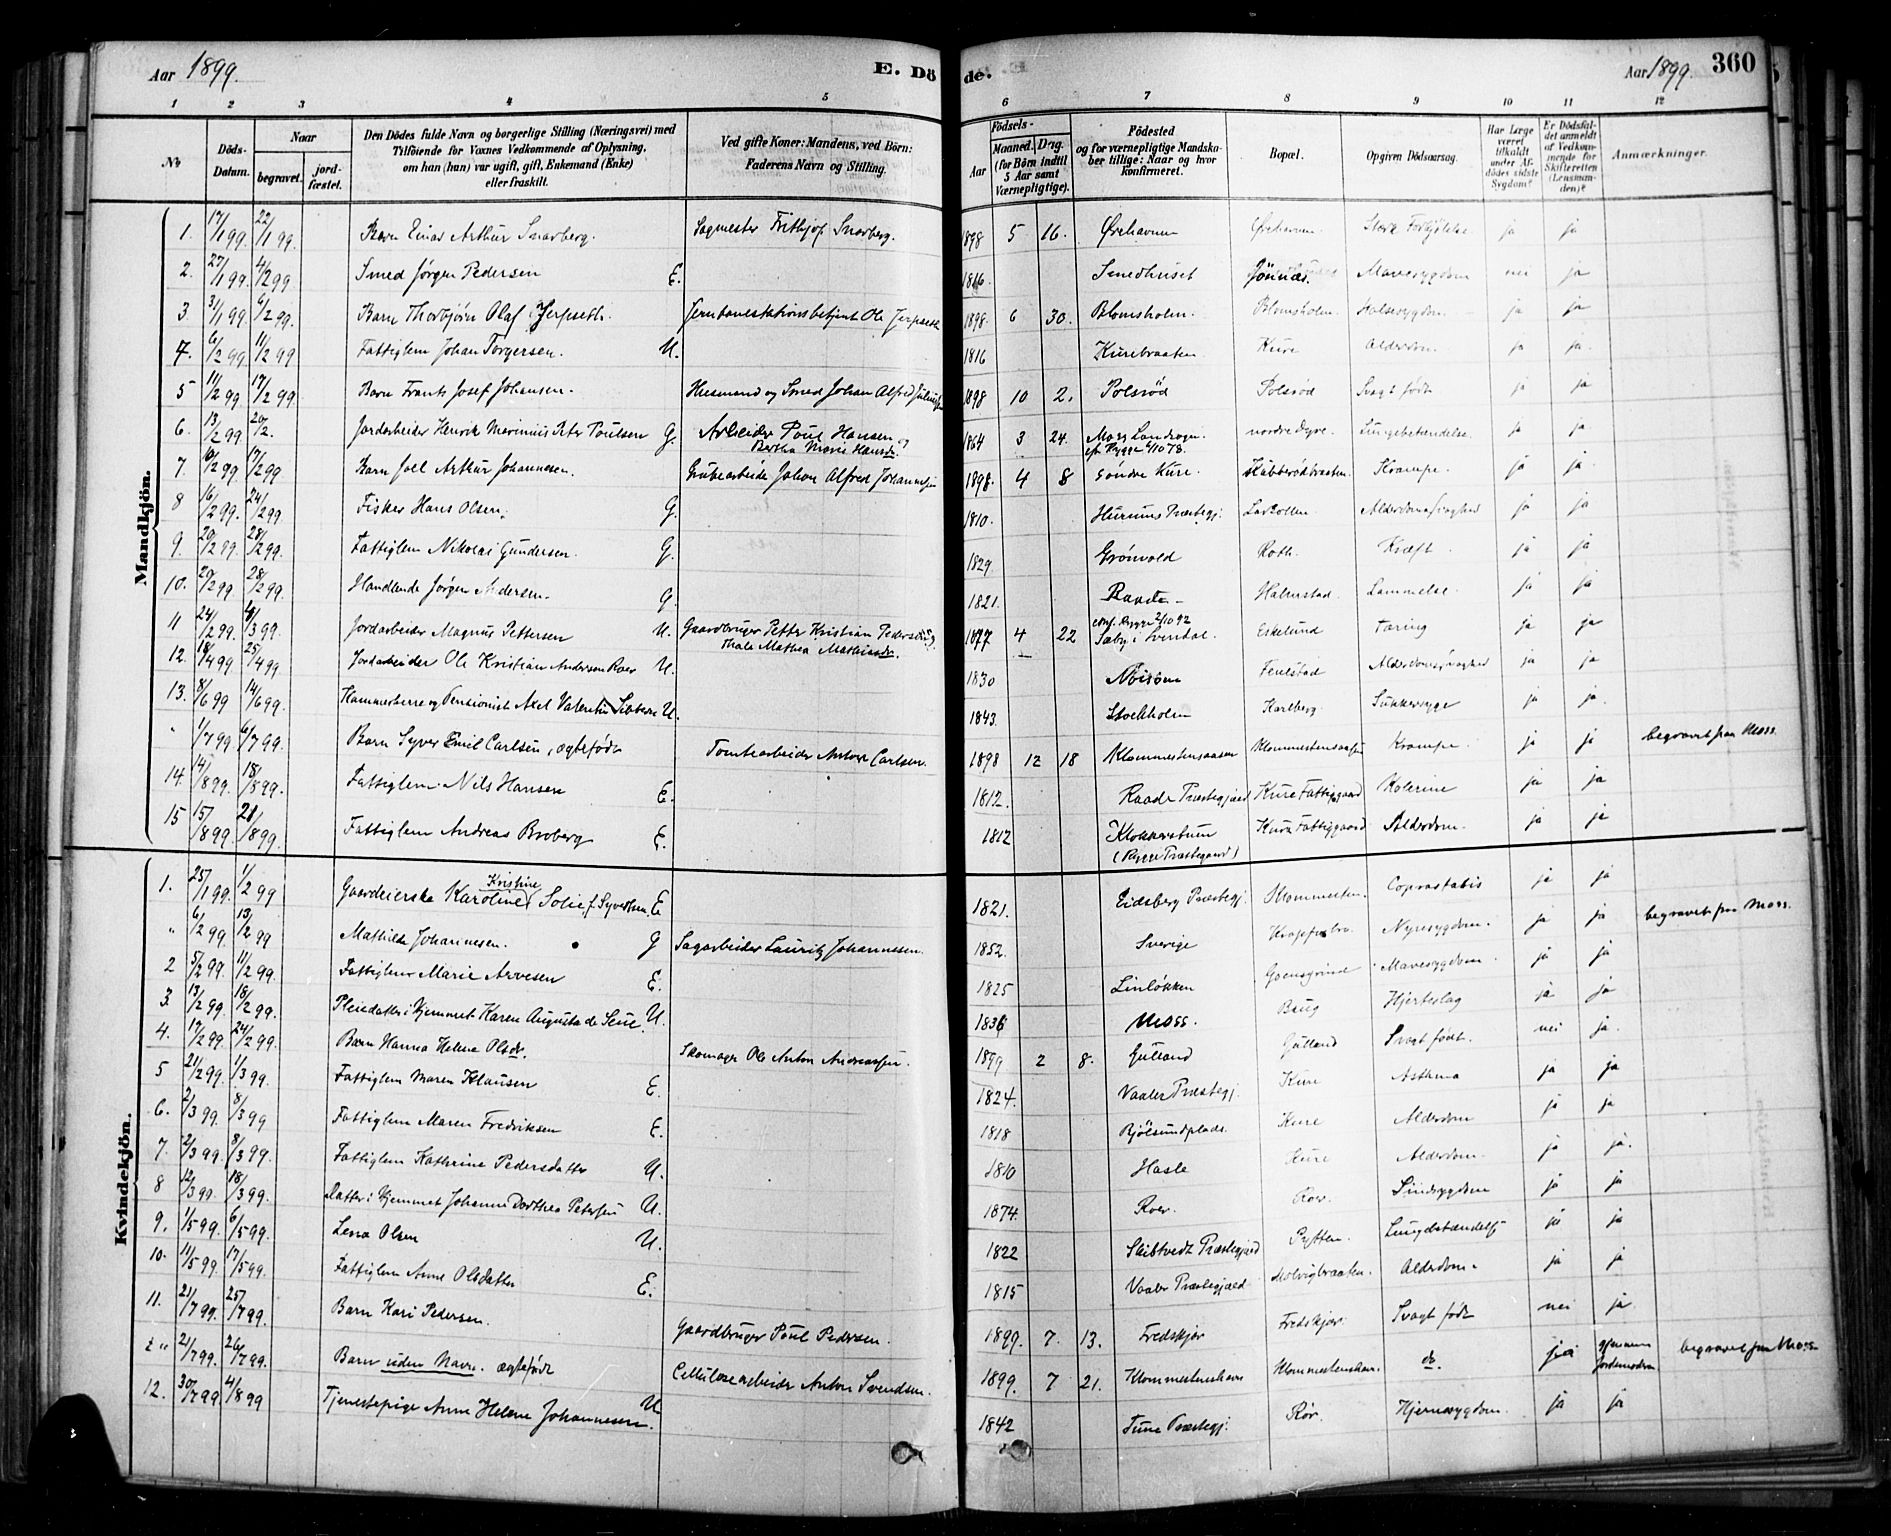 Aar 1899.
E. Dö
de.
Aar 1899.
360
1 2 3 4 5 6 7 8 9 10 11 12
No
Döds-Datum.
Naar
begravet.
jord-fæstet.
Den Dödes fulde Navn og borgerlige Stilling (Næringsvei) med
Tilföiende for Voxnes Vedkommende af Oplysning,
om han (hun) var ugift, gift, Enkemand (Enke)
eller fraskilt.
Ved gifte Koner: Mandens, ved Börn:
Faderens Navn og Stilling.
Födsels-
Aar
Maaned.
Dag.
(for Börn indtil
5 Aar samt
Værnepligtige).
Födested
og for værnepligtige Mandska-
ber tillige: Naar og hvor
konfirmeret.
Bopæl.
Opgiven Dödsaarsag.
Har Læge
været
tilkaldt
under Af-
dödes sidste
Sygdom?
Er Dödsfal-
det anmeldt
af Vedkom-
mende for
Skifteretten
(Lensman-
den)?
Anmærkninger.
Mandkjön.
1. 17/1 99. 22/1 99. Barn Einar Arthur Snarberg. Sagmester Frithjof Snarberg. 1898 5 16. Ørehavnen ja ja
2. 27/1 99. 4/2 99. Smed Jørgen Pedersen E. 1816 Smedhuset Mavesygdom nei ja
3. 31/1 99. 6/2 99. Barn Thorbjørn Olaf Jerpseth. Jernbanestationsbetjent Ole Jerpseth 1898. 6 30. Blomsholm. Blomsholm Halssygdom ja ja
4. 6/2 99 11/2 99 Fattiglem Johan Torgersen. U. 1816 Kurebraaten Kure Alderdom. ja ja.
5 11/2 99 17/2 99 Barn Frants Josef Johansen. Husmand og Smed Johan Alfred 1898 10 2. Polsrød Polsrød Svagt født ja ja
6. 13/2 99. 20/2. Jordarbeider Henrik Marinius Peter Poulsen G. Arbeider Poul Hansen og Bertha Marie Hansdr. 1864 3 24. Moss Landsogn. Rygge 6/10 78. nordre Dyre. Lungebetændelse. ja ja
7. 6/2 99 17/2 99. Barn Joel Arthur Johannesen. Grubearbeide Johan Alfred Johannesen 1898. 4 8 søndre Kure. Krampe. ja ja
8 16/2 99. 24/2 99. Fisker Hans Olsen. G. 1810. Hurums Præstegj. Larkollen Alderdomssvaghed ja ja
9. 20/2 99. 28/2 99. Fattiglem Nikolai Gundersen. G. 1829. Grønvold Roth. Kræft ja ja
10. 20/2 99. 28/2 99. Handlende Jørgen Andersen. G. 1821. Raade Halmstad. Lammelse. ja ja
11 24/2 99. 4/3 99. Jordarbeider Magnus Pettersen U. Gaardbruger Petter Kristian Pedersen og Thale Mathea Mathiasdr. 1877 4 22 conf. Rygge 2/10 92 Sæby i Svendal. Eskelund Tæring ja ja
12. 18/4 99 25/4 99. Jordarbeider Ole Kristian Andersen Roer U. 1830 Fenlstad Alderdomssvaghed ja ja
13. 8/6 99 14/6 99. Kammerherre og Pensionist Axel Valentin Sibbern U. 1843. Stockholm Karlberg. Sukkersyge ja ja.
" 1/7 99 6/7 99. Barn Syver Emil Carlsen, ægtefødt Tomtearbeider Anton Carlsen. 1898 12 18 Klommestensaasen Klommestensaasen Krampe. ja ja begravet fra Moss.
14. 14/8 99. 18/8 99. Fattiglem Nils Hansen E. 1812. Raade Præstegjæld Kure Fattiggaard Kolerine ja ja
15 15/8 99. 21/8 99. Fattiglem Andreas Broberg E. 1812 Klokkerstuen (Rygge Præstegaard) Kure Fattiggaard Alderdom. ja ja
Kvindekjön.
1. 25/1 99. 1/2 99 Gaardeierske Karoline Kristine Solie f. Syvertsen. E 1821. Eidsberg Præstegj. Klommesten. Coprostasis ja ja
" 6/2 99. 13/2 99 Mathilde Johannesen. G Sagarbeider Lauritz Johannesen. 1852. Sverige Krapfosbro. Nyresygdom. ja ja begravet fra Moss.
2 5/2 99 11/2 99. Fattiglem Marie Arvesen E. 1825 Linløkken Goensgrind Mavesygdom ja ja
3. 13/2 99. 18/2 99. Pleiedatter i Hjemmet Karen Augusta de Seue U. 1836 Moss. Baug Hjerteslag ja ja
4. 17/2 99. 24/2 99. Barn Hanna Helene Olsdr. Skomager Ole Anton Andreassen 1899 2 8. Gulland Gulland Svagt født. nei ja.
5 21/2 99. 1/3 99. Fattiglem Maren Klausen E. 1824. Vaaler Præstegj. Kure Asthma ja ja
6. 2/3 99. 8/3 99 Fattiglem Maren Fredriksen E. 1818 Bjølsundplads. Kure Alderdom ja ja
7. 2/3 99. 8/3 99. Fattiglem Kathrine Pedersdatter U. 1810 Hasle Kure Alderdom. ja ja.
8 12/3 99. 18/3 99. Datter i Hjemmet Johanne Dorthea Petersen U. 1874. Roer. Roer. Sindssygdom ja ja
9. 1/5 99. 6/5 99. Lena Olsen U. 1822 Skibtvedt Præstegjæld Pytten. Lungebetændelse ja ja
10. 11/5 99. 17/5 99. Fattiglem Anne Olsdatter E. 1815 Vaaler Præstegjæld Alderdom. ja ja
11. 21/7 99. 25/7 99. Barn Kari Pedersen. Gaardbruger Poul Pedersen. 1899. 7. 13. Fredskjør Fredskjør. Svagt født nei ja
" 21/7 99. 26/7 99. Barn uden Navn. ægtefødt Cellulosearbeider Anton Svendsen. 1899. 7 21. Klommestenshavn Klommestenshavn. do. ja gjennem Jordemoderen begravet fra Moss
12. 30/7 99. 4/8 99 Tjenestepige Anne Helene Johannesen. U 1842 Tune Præstegj. Rør. Hjernesygdom. ja ja